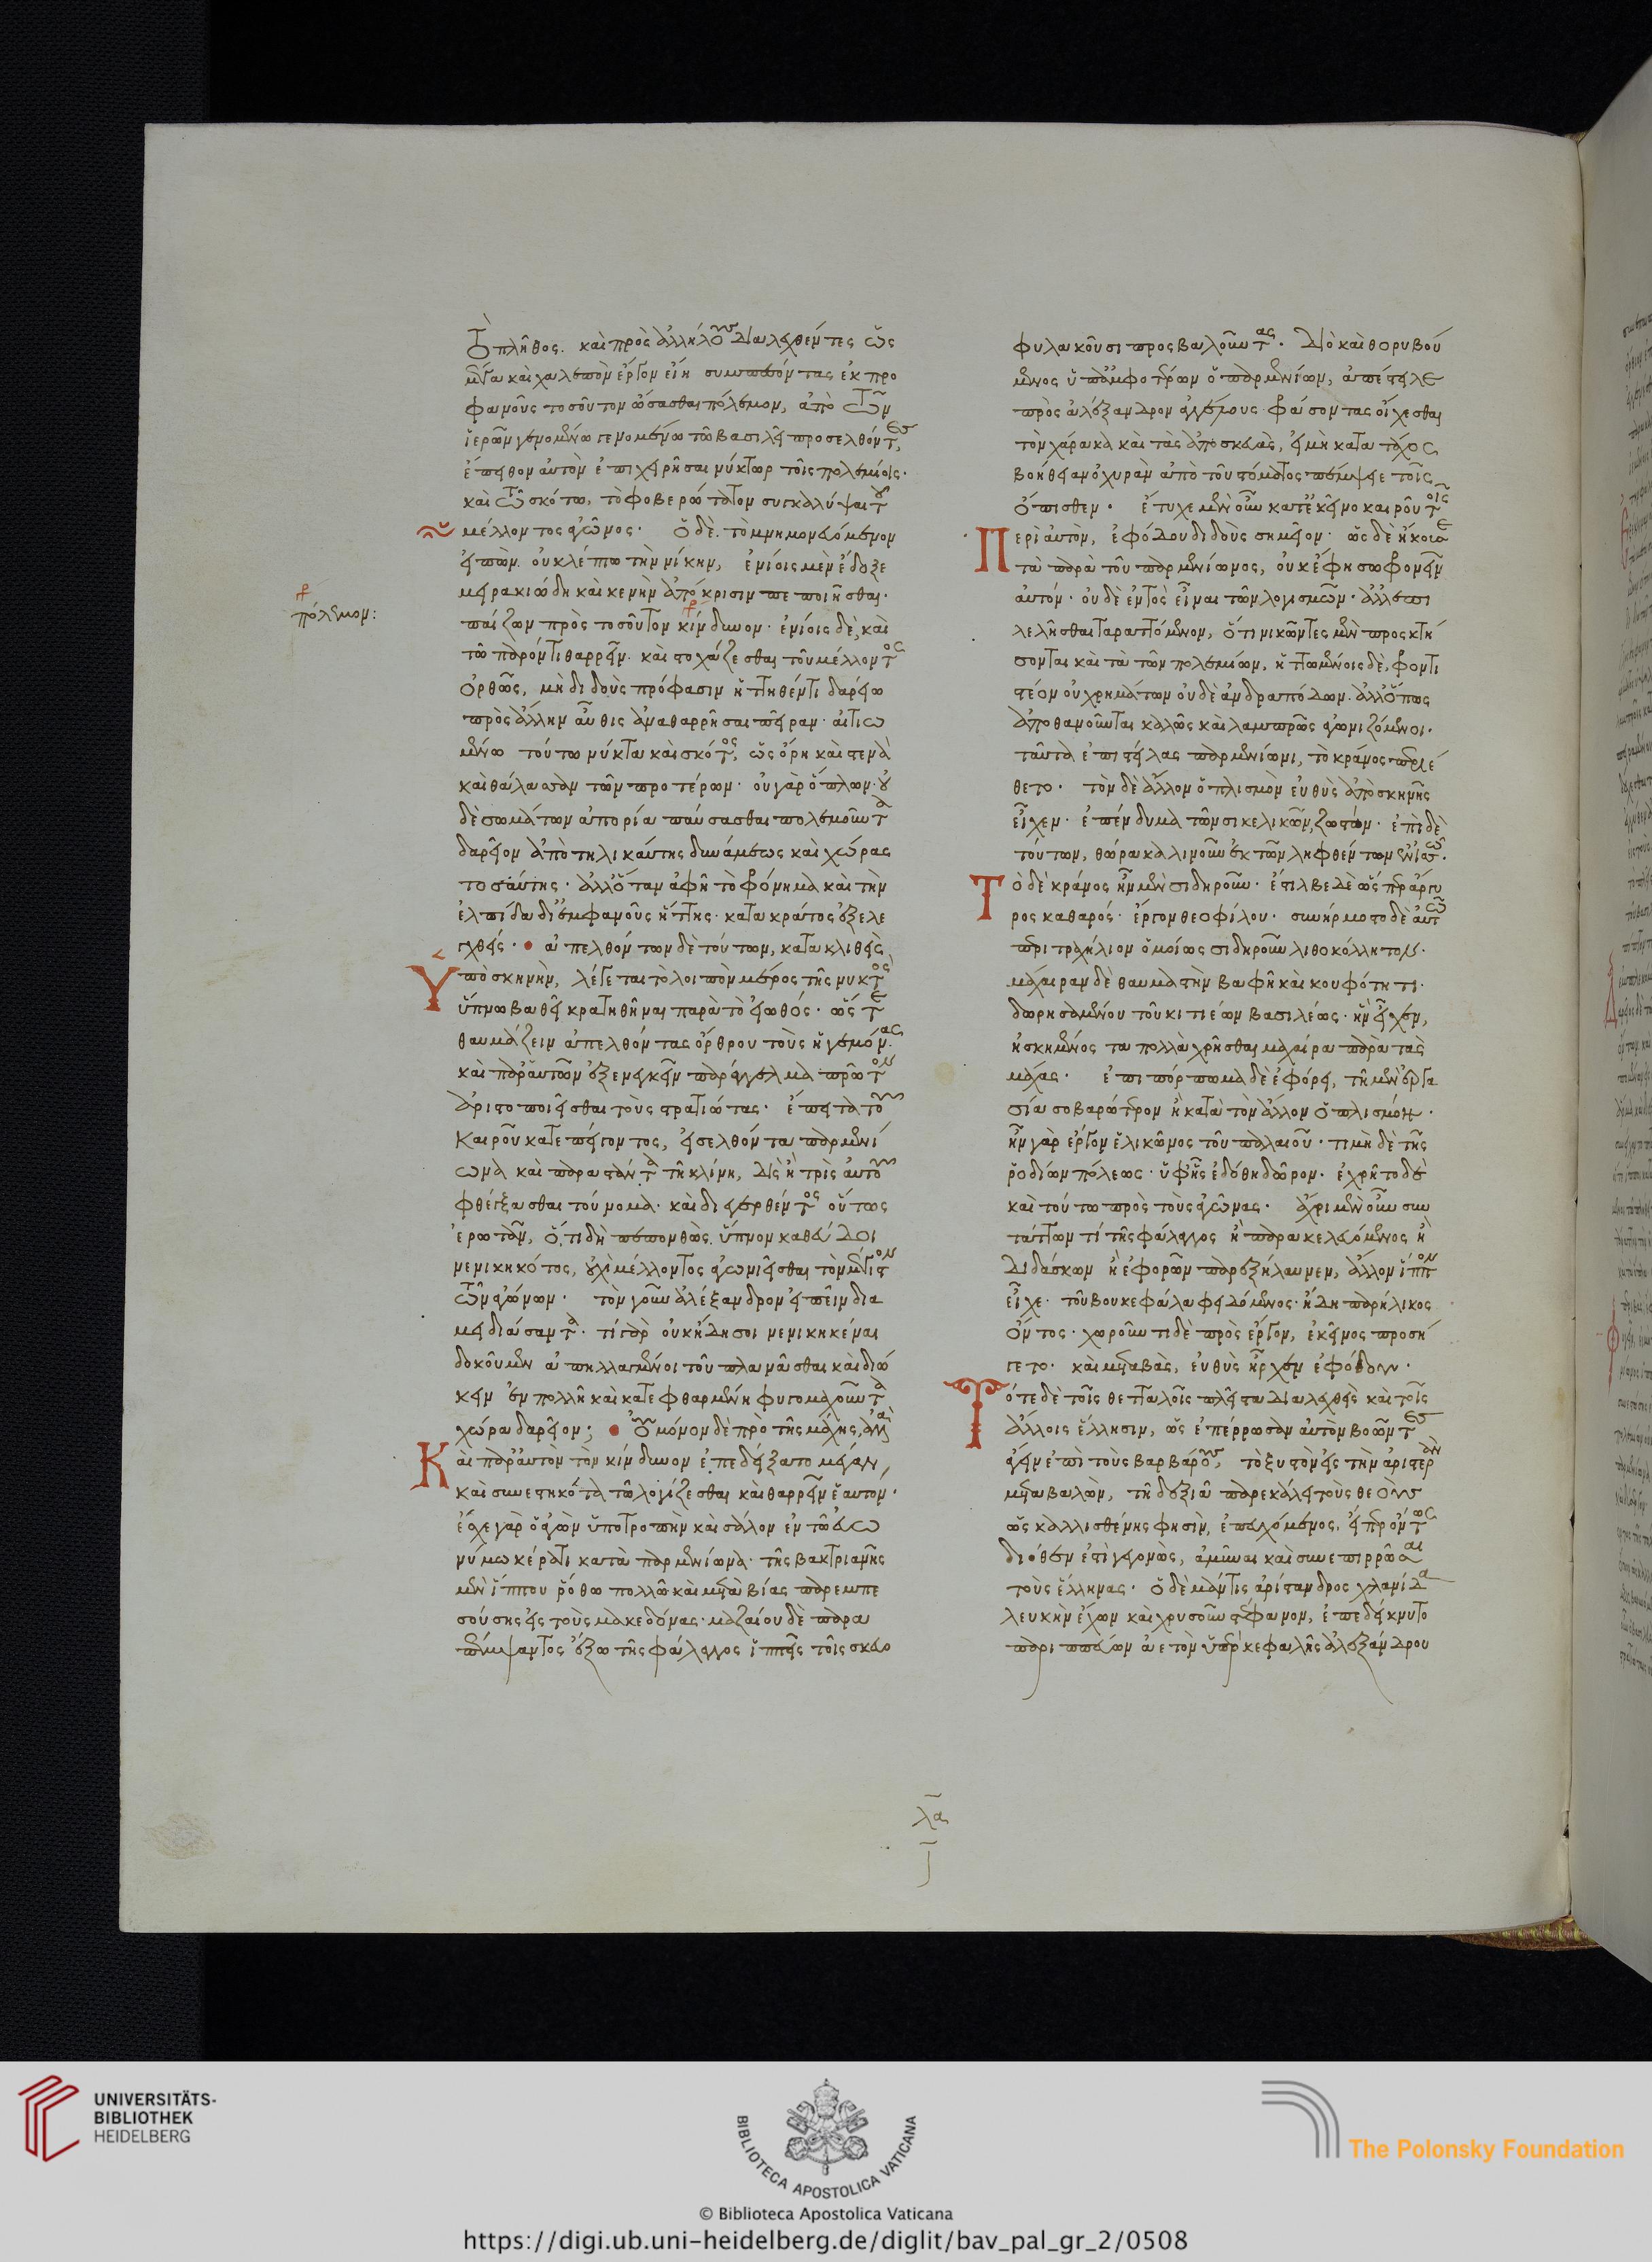 Τὸ πλῆθος. καὶ πρὸς ἀλλήλους διαλεχθέντες ὡς
μέγα καὶ χαλεπὸν ἔργον εἴη συμπεσόντας ἐκ προ
φανοῦς τοσοῦτον ὤσασθαι πόλεμον, ἀπὸ τῶν
ἱερῶν γενομένω γενομένω τῶ βασιλεῖ προσελθόντες,
ἔπειθον αὐτὸν ἐπιχειρῆσαι νύκτωρ τοῖς πολεμίοις.
καὶ τῶ σκότω, τὸ φοβερώτατον συγκαλύψαι τοῦ
μέλλοντος ἀγῶνος· ὁ δὲ. τὸ μνημονευόμενον
εἰπὼν. οὐ κλέπτω τὴν νίκην, ἐνίοις μὲν ἔδοξε
μειρακιώδη καὶ κενὴν ἀπόκρισιν πεποιῆσθαι·
πόλεμον:
παίζων πρὸς τοσοῦτον κίνδυνον· ἐνίοις δὲ, καὶ
τῶ παρόντι θαρρεῖν· καὶ στοχάζεσθαι τοῦ μέλλοντος
ὀρθῶς, μὴ διδοὺς πρόφασιν ἡττηθέντι δαρείω
πρὸς ἄλλην αὖθις ἀναθαρρῆσαι πεῖραν· αἰτιω
μένω τούτω νύκτα καὶ σκότος, ὡς ὄρη καὶ στενὰ
καὶ θάλασσαν τῶν προτέρων· οὐ γὰρ ὅπλων· οὐ
δὲ σωμάτων ἀπορία παύσασθαι πολεμοῦντα
δαρεῖον ἀπὸ τηλικαύτης δυνάμεως καὶ χώρας
τοσαύτης· ἀλλ' ὅταν ἀφῆ τὸ φρόνημα καὶ τὴν
ἐλπίδα δι' ἐμφανοῦς ἥττης· κατακράτος ἐξελε
γχθείς· ἀπελθόντων δὲ τούτων, κατακλιθεὶς
Ὑπὸ σκηνὴν, λέγεται τὸ λοιπὸν μέρος τῆς νυκτὸς
ὕπνω βαθεῖ κρατηθῆναι παρὰ τὸ εἰωθός· ὥστε
θαυμάζειν ἀπελθόντας ὄρθρου τοὺς ἡγεμόνας.
καὶ παρ' αὐτῶν ἐξενεγκεῖν παράγγελμα πρῶτον
ἀριστοποιεῖσθαι τοὺς στρατιώτας· ἔπειτα τοῦ
καιροῦ κατεπείγοντος, εἰσελθόντα παρμενί
ωνα καὶ παραστάντα τῆ κλίνη, δὶς ἢ τρὶς αὐτοῦ
φθέγξασθαι τοὔνομα· καὶ διεγερθέντος οὕτως
ἐρωτᾶν, ὅ,τι δὴ πεπονθὼς ὕπνον καθεύδοι
νενικηκότος, οὐχὶ μέλλοντος ἀγωνιεῖσθαι τὸν μέγιστον
τῶν ἀγώνων· τὸν γοῦν ἀλέξανδρον εἰπεῖν δια
μειδιάσαντα· τί γὰρ οὐκ ἤδη σοι νενικηκέναι
δοκοῦμεν ἀπηλλαγμένοι τοῦ πλανᾶσθαι καὶ διώ
κειν ἐν πολλῆ καὶ κατεφθαρμένη φυγομαχοῦντα
χώρα δαρεῖον; οὐ μόνον δὲ πρὸ τῆς μάχης, ἀλλὰ
Καὶ παρ' αὐτὸν τὸν κίνδυνον ἐπεδείξατο μέγαν,
καὶ συνεστηκότα τῶ λογίζεσθαι καὶ θαρρεῖν ἑαυτον·
ἔσχε γὰρ ὁ ἀγὼν ὑποτροπὴν καὶ σάλον ἐν τῶ εὐω
νύμω κέρατι κατὰ παρμενίωνα· τῆς βακτριανῆς
μὲν ἵππου ῥόθω πολλῶ καὶ μετὰ βίας παρεμπε
σούσης εἰς τοὺς μακεδόνας· μαζαίου δὲ παρα
πέμψαντος ἔξω τῆς φάλαγγος ἱππεῖς τοῖς σκευο
φυλακοῦσι προσβαλοῦντας· διὸ καὶ θορυβού
μενος ὑπ' ἀμφοτέρων ὁ παρμενίων, ἀπέστειλε
πρὸς ἀλέξανδρον ἀγγέλους φράσοντας οἴχεσθαι
τὸν χάρακα καὶ τὰς ἀποσκευὰς, εἰ μὴ κατὰ τάχος
βοήθειαν ὀχυρὰν ἀπὸ τοῦ στόματος πέμψειε τοῖς
ὄπισθεν· ἔτυχε μὲν οὖν κατ' ἐκεῖνο καιροῦ τοῖς
Περὶ αὐτὸν, ἐφόδου διδοὺς σημεῖον· ὡς δὲ ἤκουσε
τὰ παρὰ τοῦ παρμενίωνος, οὐκ ἔφη σωφρονεῖν
αὐτόν· οὐδὲ ἐντὸς εἶναι τῶν λογισμῶν· ἀλλ' ἐπι
λελῆσθαι ταραττόμενον, ὅτι νικῶντες μὲν προσκτή
σονται καὶ τὰ τῶν πολεμίων, ἡττωμένοις δὲ, φροντι
στέον οὐ χρημάτων οὐδὲ ἀνδραπόδων· ἀλλ' ὅπως
ἀποθανοῦνται καλῶς καὶ λαμπρῶς ἀγωνιζόμενοι·
ταῦτα ἐπιστείλας παρμενίωνι, τὸ κράνος περιέ
θετο· τὸν δὲ ἄλλον ὁπλισμὸν εὐθὺς ἀπὸ σκηνῆς
εἶχεν· ἐπένδυμα τῶν σικελικῶν, ζωστόν· ἐπὶ δὲ
τούτων, θώρακα λινοῦν ἐκ τῶν ληφθέντων ἐν ἰσσῶ.
Τὸ δὲ κράνος ἦν μὲν σιδηροῦν· ἔστιλβε δὲ ὥσπερ ἄργυ
ρος καθαρός· ἔργον θεοφίλου· συνήρμοστο δὲ αὐτῶ
περιτραχήλιον ὁμοίως σιδηροῦν λιθοκόλλητον·
μάχαιραν δὲ θαυμαστὴν βαφῆ καὶ κουφότητι·
δωρησαμένου τοῦ κιτιέων βασιλέως· ἣν εἶχεν,
ἠσκημένος τὰ πολλὰ χρῆσθαι μαχαίρα παρὰ τὰς
μάχας· ἐπιπόρπωμα δὲ ἐφόρει, τῆ μὲν ἐργα
σία σοβαρώτερον ἢ κατὰ τὸν ἄλλον ὁπλισμόν·
ἦν γὰρ ἔργον ἑλικῶνος τοῦ παλαιοῦ· τιμὴ δὲ τῆς
ῥοδίων πόλεως· ὑφ' ἧς ἐδόθη δῶρον· ἐχρῆτο δὲ
καὶ τούτω πρὸς τοὺς ἀγῶνας· ἄχρι μὲν οὖν συν
τάττων τί τῆς φάλαγγος ἢ παρακελευόμενος ἢ
διδάσκων ἢ ἐφορῶν παρεξήλαυνεν, ἄλλον ἵππον
εἶχε· τοῦ βουκεφάλα φειδόμενος· ἤδη παρήλικος
ὄντος· χωροῦντι δὲ πρὸς ἔργον, ἐκεῖνος προσή
γετο· καὶ μεταβὰς, εὐθὺς ἦρχεν ἐφόδου·
Τότε δὲ τοῖς θετταλοῖς πλεῖστα διαλεχθεὶς καὶ τοῖς
ἄλλοις ἕλλησιν, ὡς ἐπέρρωσαν αὐτὸν βοῶντες
ἄγειν ἐπὶ τοὺς βαρβάρους, τὸ ξυστὸν εἰς τὴν ἀριστερὰν
μεταβαλὼν, τῆ δεξιᾶ παρεκάλει τοὺς θεοὺς
ὡς καλλισθένης φησὶν, ἐπευχόμενος, εἴπερ ὄντως
διόθεν ἐστὶ γεγονὼς, ἀμῦναι καὶ συνεπιρρῶσαι
τοὺς ἕλληνας· ὁ δὲ μάντις ἀρίστανδρος χλαμύδα
λευκὴν ἔχων καὶ χρυσοῦν στέφανον, ἐπεδείκνυτο
παριππεύων ἀετὸν ὑπὲρ κεφαλῆς ἀλεξάνδρου
λα
UNIVERSITÄTS-
BIBLIOTHEK
HEIDELBERG
BIBLIOTECA APOSTOLICA VATICANA
The Polonsky Foundation
© Biblioteca Apostolica Vaticana
https://digi.ub.uni-heidelberg.de/diglit/bav_pal_gr_2/0508